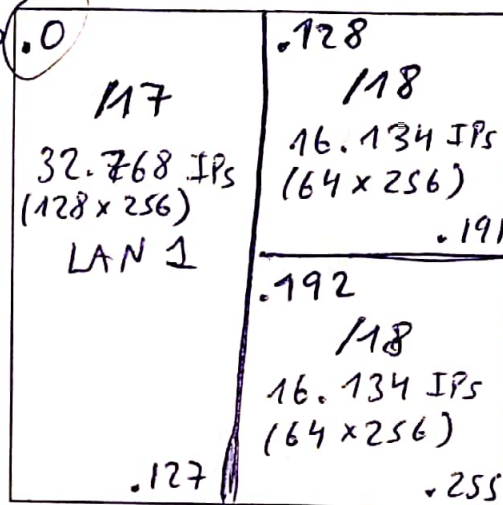 .0
/17
32.768 IPs
(128 x 256)
LAN 1
.127
.128
/18
16.134 IPs
(64 x 256)
.191
.192
/18
16.134 IPs
(64 x 256)
.255